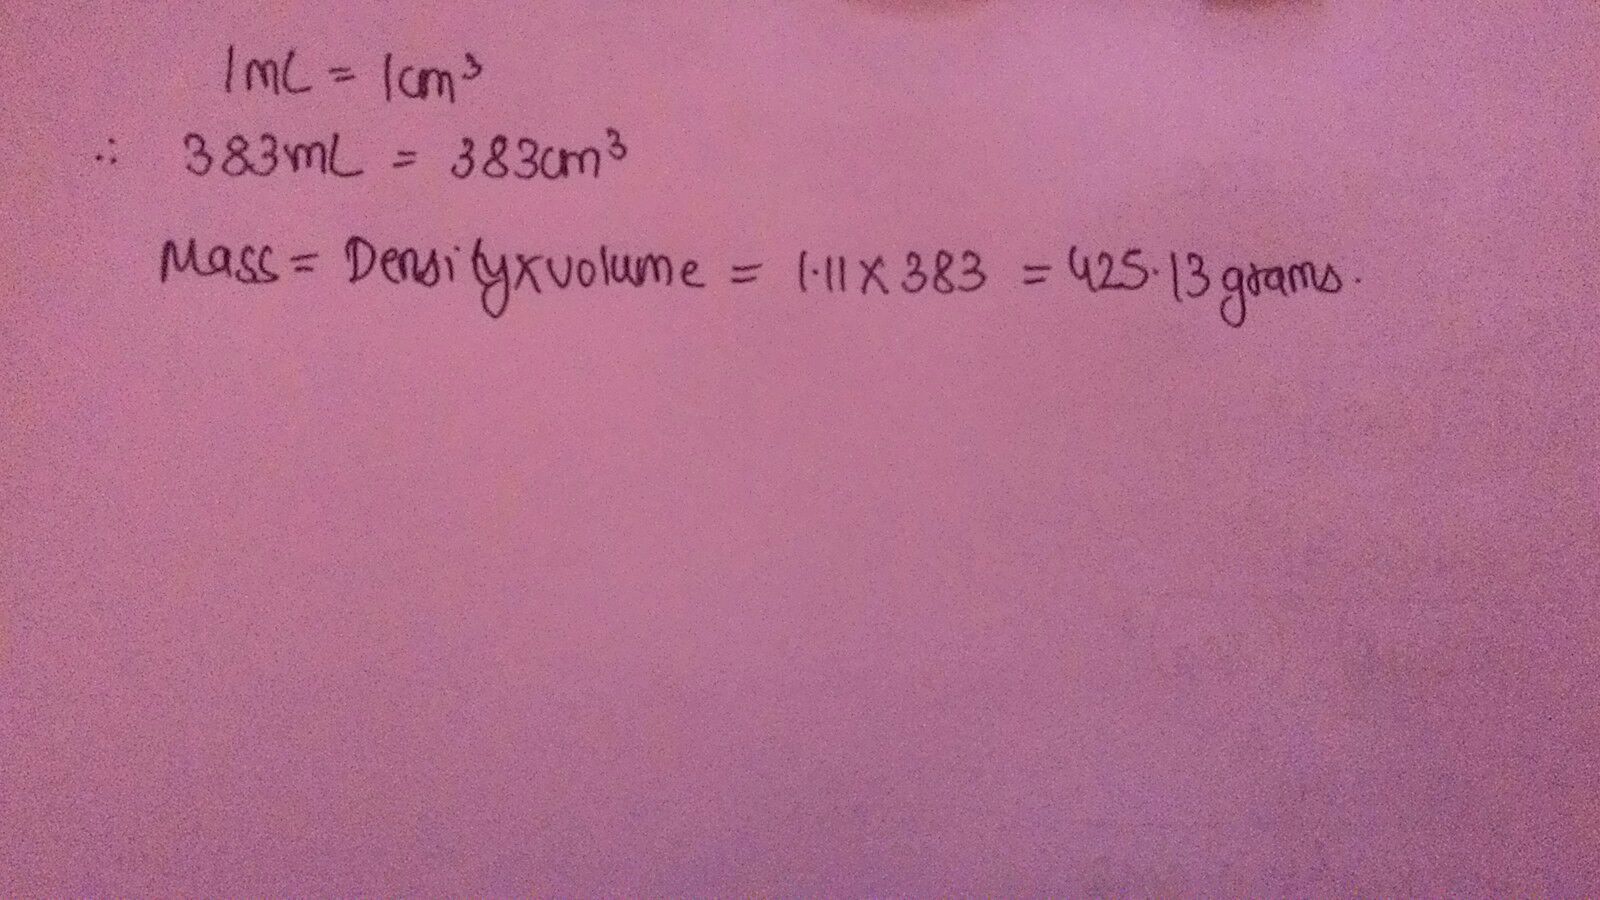 1mL = 1cm³
∴ 383mL = 383cm³
Mass = Density x volume = 1·11 X 383 = 425·13 grams.